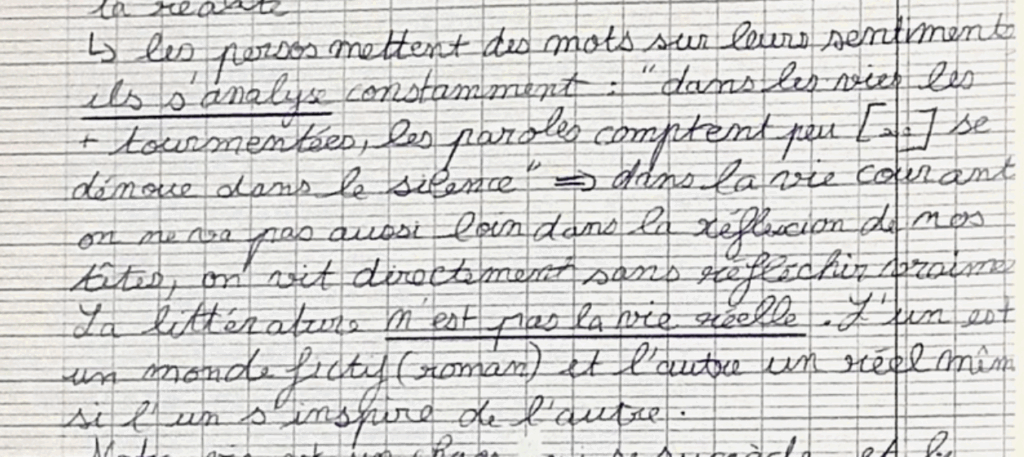 la réalité
↳ les persos mettent des mots sur leurs sentiments
ils s'analyse constamment : "dans les vies les
+ tourmentées, les paroles comptent peu [...] se
dénoue dans le silence" => dans la vie courant
on ne va pas aussi loin dans la réflexion de nos
têtes, on vit directement sans réfléchir vraime
La littérature n'est pas la vie réelle. L'un est
un monde fictif (roman) et l'autre un réel mêm
si l'un s'inspire de l'autre.